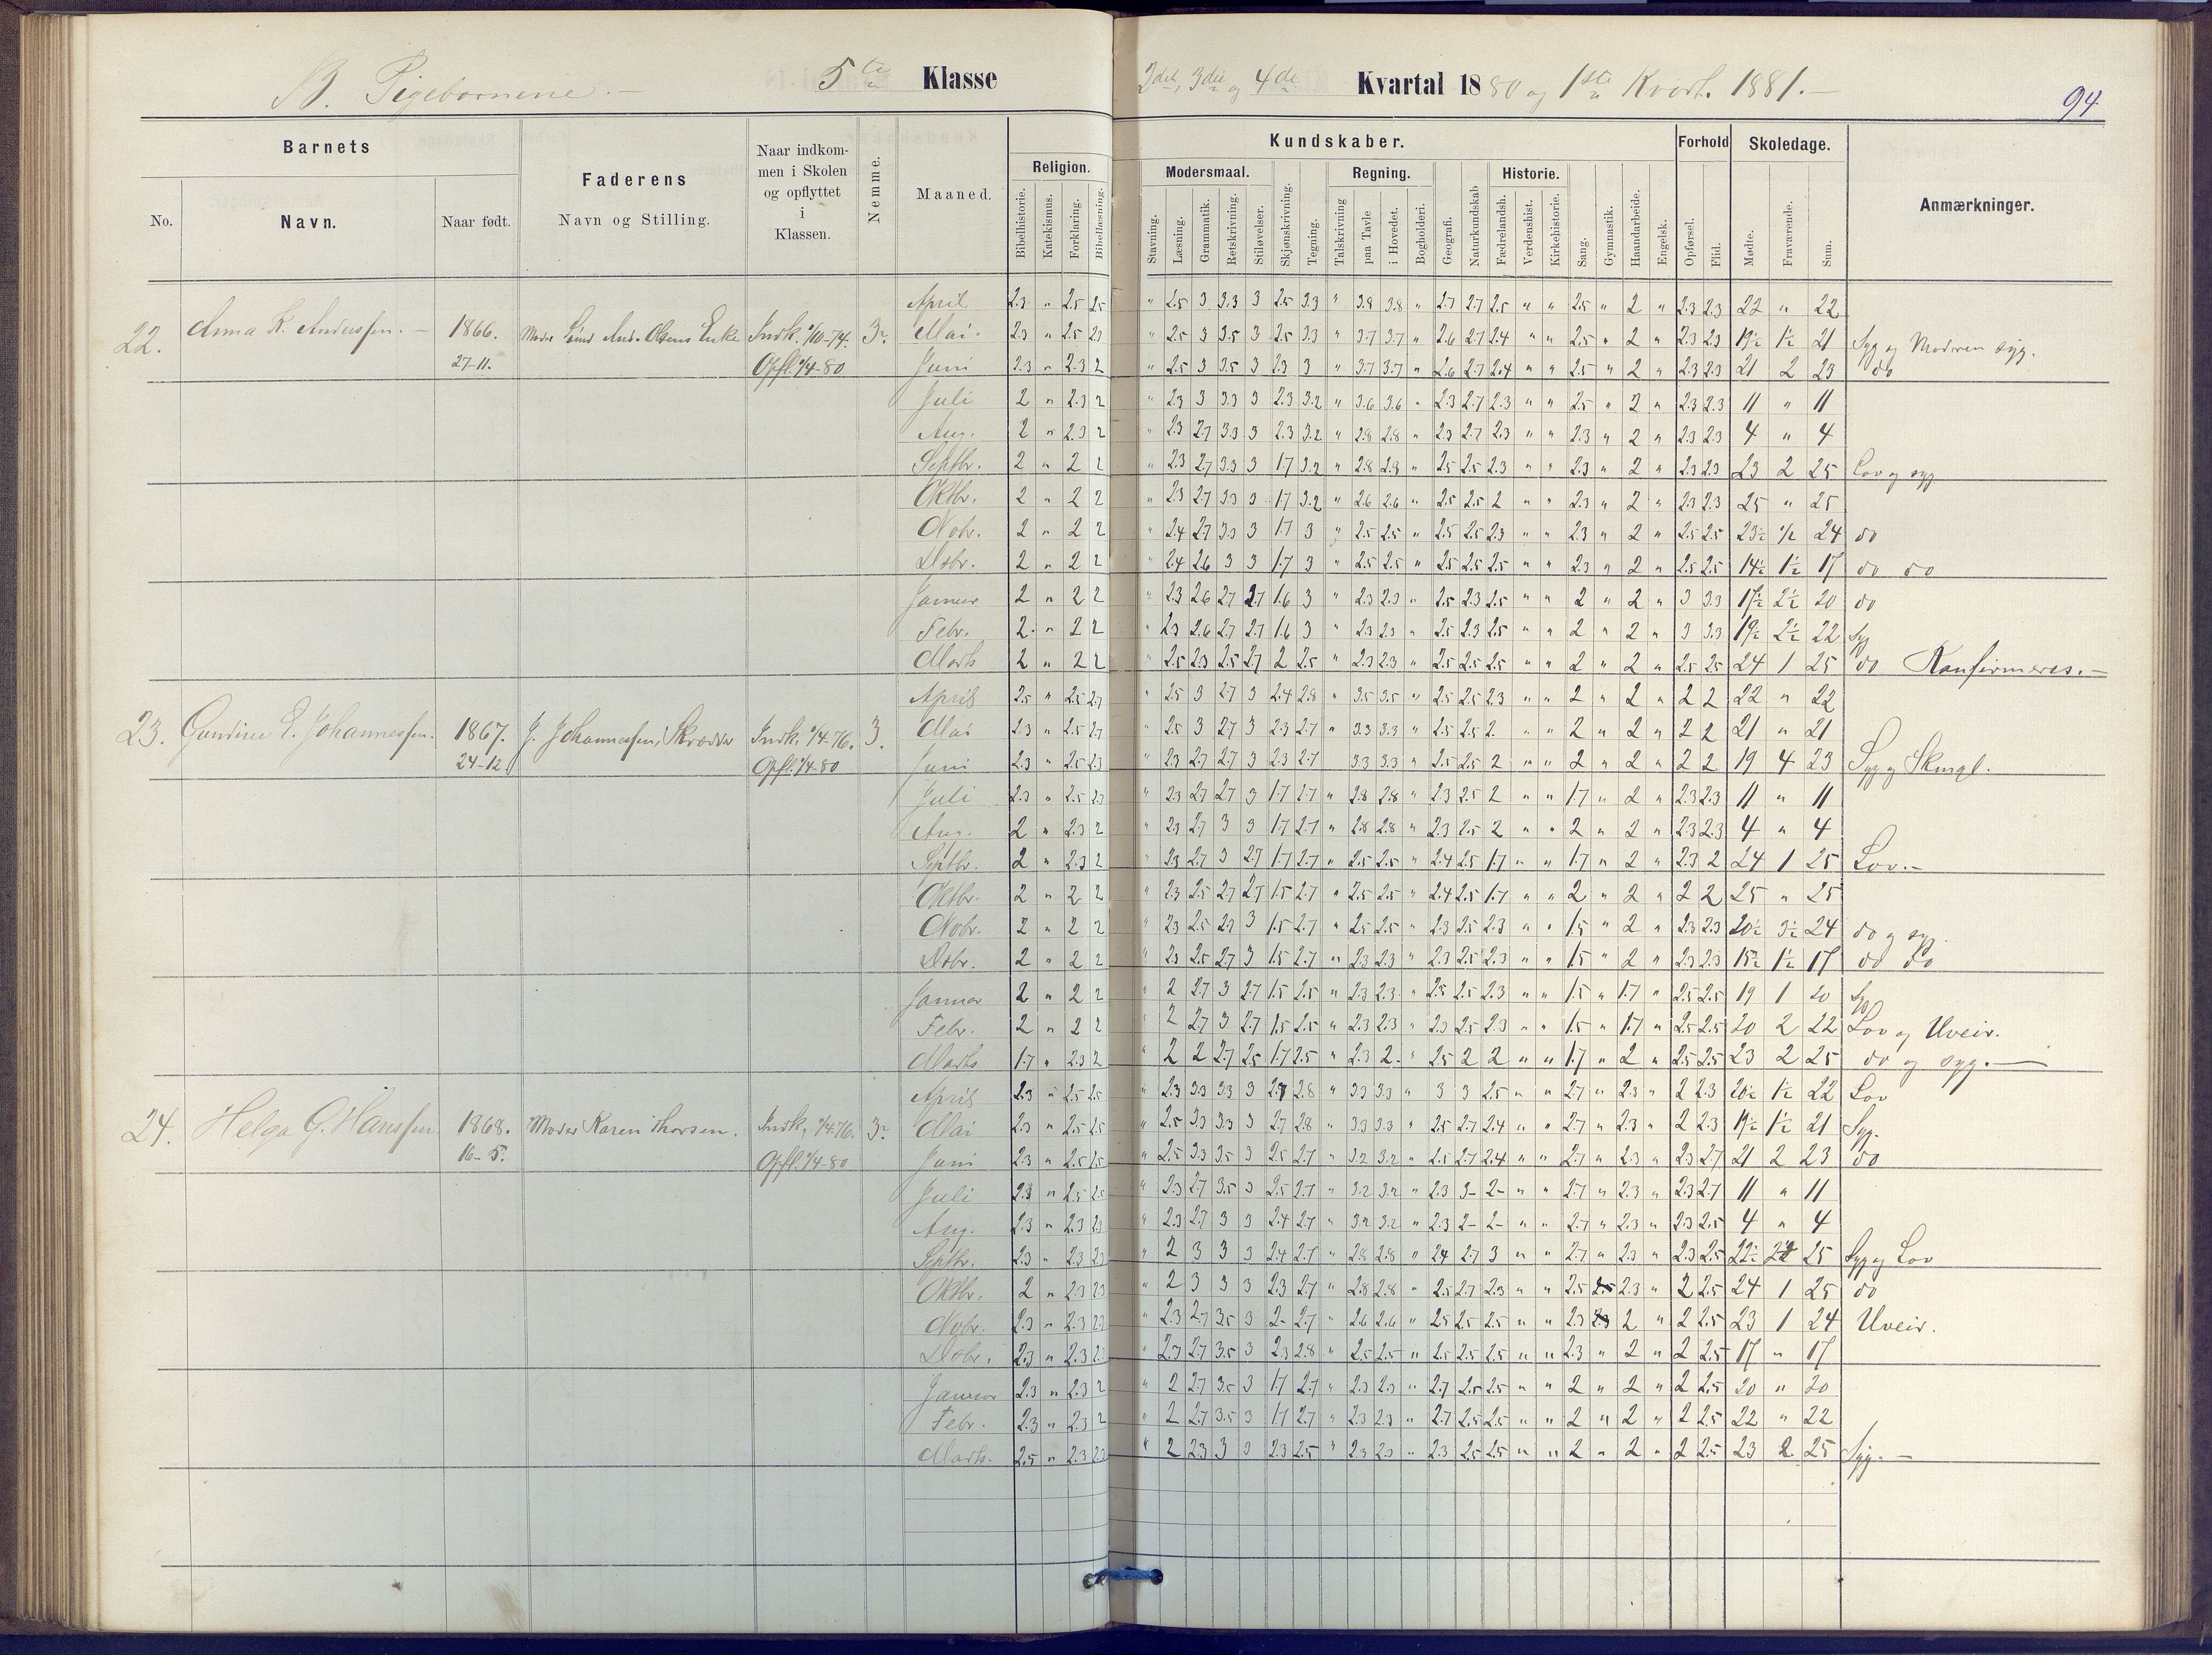 B. Pigebørnene. — 5te Klasse
2det, 3die og 4de Kvartal 1880 og 1ste Kvart. 1881. —
94
Barnets
Faderens
Naar indkommen i Skolen og opflyttet i Klassen.
Nemme.
Maaned.
Kundskaber.
Forhold
Skoledage.
Anmærkninger.
No. Navn. Naar født. Navn og Stilling.
Religion. Modersmaal. Regning. Historie.
Bibelhistorie. Katekismus. Forklaring. Bibellæsning. Stavning. Læsning. Grammatik. Retskrivning. Stiløvelser. Skjønskrivning. Tegning. Talskrivning paa Tavle i Hovedet. Bogholderi. Geografi. Naturkundskab Fædrelandsh. Verdenshist. Kirkehistorie. Sang. Gymnastik. Haandarbeide. Engelsk. Opførsel. Flid. Mødte. Fraværende. Sum.
22. Anna K. Anderssen. — 1866. 27-11.
Indk. 1/10-74. Opfl. 1/4-80
April 2.3 " 2.5 2.5 " 2.5 3 3.3 3 2.5 3.3 " 3.8 3.8 " 2.7 2.7 2.5 " " 2.5 " 2 " 2.3 2.3 22 " 22
Mai 2.3 " 2.5 2.3 " 2.5 3 3.5 3 2.5 3.3 " 3.7 3.7 " 2.6 2.7 2.4 " " 2.5 " 2 " 2.3 2.3 19½ 1½ 21 Syg og Moderen syg.
Juni 2.3 " 2.3 2 " 2.5 3 3.5 3 2.3 3 " 3.7 3.7 " 2.6 2.7 2.4 " " 2.5 " 2 " 2.3 2.3 21 2 23 do
Juli 2 " 2.3 2 " 2.3 3 3.3 3 2.3 3.2 " 3.6 3.6 " 2.3 2.7 2.3 " " 2.5 " 2 " 2.3 2.3 11 " 11
Aug. 2 " 2.3 2 " 2.3 2.7 3.3 3 2.3 3.2 " 2.8 2.8 " 2.3 2.7 2.3 " " 2.3 " 2 " 2.3 2.3 4 " 4
Septbr. 2 " 2 2 " 2.3 2.7 3.3 3 1.7 3.2 " 2.8 2.8 " 2.5 2.5 2.3 " " 2.3 " 2 " 2.3 2.3 23 2 25 Lov og syg
Oktbr. 2 " 2 2 " 2.3 2.7 3.3 3 1.7 3.2 " 2.6 2.6 " 2.5 2.5 2 " " 2.3 " 2 " 2.3 2.3 25 " 25
Nobr. 2 " 2 2 " 2.4 2.7 3.3 3 1.7 3 " 2.5 2.5 " 2.5 2.5 2.3 " " 2.3 " 2 " 2.5 2.5 23½ ½ 24 do
Dsbr. 2 " 2 2 " 2.4 2.6 3 3 1.7 3 " 2.5 2.5 " 2.5 2.5 2.5 " " 2.3 " 2 " 2.5 2.5 14½ 1½ 17 do do
Januar 2 " 2 2 " 2.3 2.6 2.7 2.7 1.6 3 " 2.3 2.3 " 2.5 2.3 2.5 " " 2 " 2 " 3 3.3 17½ 2½ 20 do
Febr. 2 " 2 2 " 2.3 2.6 2.7 2.7 1.6 3 " 2.3 2.3 " 2.5 2.3 2.5 " " 2 " 2 " 3 3.3 19½ 2½ 22 Syg
Marts 2 " 2 2 " 2.5 2.3 2.5 2.7 2 2.5 " 2.3 2.3 " 2.5 2.5 2.5 " " 2 " 2 " 2.5 2.5 24 1 25 do Konfirmeres. —
23. Gundine E. Johannessen. 1867. 24-12. J. Johannessen, Skrædder Indk. 1/4-76. Opfl. 1/4-80 3.
April 2.5 " 2.5 2.7 " 2.5 3 2.7 3 2.4 2.8 " 3.5 3.5 " 2.5 2.5 2.3 " " 2 " 2 " 2 2 22 " 22
Mai 2.3 " 2.5 2.7 " 2.5 3 2.7 3 2.3 2.7 " 3.3 3.3 " 2.5 2.5 2 " " 2 " 2 " 2 2 21 " 21
Juni 2.3 " 2.5 2.3 " 2.3 2.7 2.7 3 2.3 2.7 3.3 3.3 " 2.5 2.5 2 " " 2 " 2 " 2 2 19 4 23 Syg og Skmgl.
Juli 2.3 " 2.5 2.3 " 2.3 2.7 2.7 3 1.7 2.7 " 2.8 2.8 " 2.3 2.5 2 " " 1.7 " 2 " 2.3 2.3 11 " 11
Aug. 2 " 2.3 2 " 2.3 2.7 3 3 1.7 2.7 " 2.8 2.8 " 2.3 2.5 2 " " 2 " 2 " 2.3 2.3 4 " 4
Septbr. 2 " 2.3 2 " 2.3 2.7 3 2.7 1.7 2.7 " 2.5 2.5 " 2.4 2.5 1.7 " " 1.7 " 2 " 2.3 2 24 1 25 Lov. —
Oktbr. 2 " 2 2 " 2.3 2.5 2.7 2.7 1.5 2.7 " 2.5 2.5 " 2.4 2.5 1.7 " " 2 " 2 " 2 2 25 " 25
Nobr. 2 " 2 2 " 2.3 2.5 2.7 3 1.5 2.7 " 2.5 2.5 " 2.3 2.5 2.3 " " 1.5 " 2 " 2.3 2.3 20½ 3½ 24 do og syg.
Dsbr. 2 " 2 2 " 2.3 2.5 2.7 3 1.5 2.7 " 2.3 2.3 " 2.3 2.5 2.3 " " 1.5 " 2 " 2.3 2.3 15½ 1½ 17 do do
Januar 2 " 2 2 " 2 2.7 3 2.7 1.5 2.5 " 2.3 2.3 " 2.5 2.5 2.3 " " 1.5 " 1.7 " 2.5 2.5 19 1 20 Syg
Febr. 2 " 2 2 " 2 2.7 3 2.7 1.5 2.5 " 2.3 2.3 " 2.3 2.5 2.3 " " 1.5 " 1.7 " 2.5 2.5 20 2 22 Lov og Uveir.
Marts 1.7 " 2.3 2 " 2 2 2.7 2.5 1.7 2.5 " 2.3 2 " 2.5 2 2 " " 1.7 " 2 " 2.5 2.5 23 2 25 do og syg. —
24. Helga G. Hanssen. 1868. 16-5. Moder Karen Thorsen. Indk. 1/4-76. Opfl. 1/4-80
April 2.3 " 2.5 2.5 " 2.3 3.3 3.3 3 2.7 2.8 " 3.3 3.3 " 3 3 2.5 " " 2.7 " 2.3 " 2 2.3 20½ 1½ 22 Lov
Mai 2.3 " 2.5 2.5 " 2.5 3.3 3.3 3 2.7 2.8 " 3.3 3.3 " 2.5 2.7 2.4 " " 2.7 " 2.3 " 2 2.3 19½ 1½ 21 Syg.
Juni 2.3 " 2.5 2.5 " 2.5 3.3 3.5 3 2.5 2.7 " 3.2 3.2 " 2.5 2.7 2.4 " " 2.7 " 2.3 " 2.3 2.7 21 2 23 do
Juli 2.3 " 2.5 2.5 " 2.3 2.7 3.5 3 2.5 2.7 " 3.2 3.2 " 2.3 3- 2- " " 2.7 " 2.3 " 2.3 2.7 11 " 11
Aug. 2.3 " 2.3 2.3 " 2.3 2.7 3 3 2.4 2.7 " 3.2 3.2 " 2.3 2- 2- " " 2.7 " 2.3 " 2.3 2.5 4 " 4
Septbr. 2.3 " 2.3 2.3 " 2 3 3 3 2.4 2.7 " 2.8 2.8 " 2.4 2.7 3 " " 2.7 " 2.3 " 2.3 2.5 22½ 2½ 25 Syg og Lov
Oktbr. 2 " 2.3 2.3 " 2 3 3 3 2.3 2.7 " 2.8 2.8 " 2.5 2.7 2.3 " " 2.5 2.3 " 2 2.5 24 1 25 do
Nobr. 2.3 " 2.3 2.3 " 2.3 2.7 3.5 3 2- 2.7 " 2.6 2.6 " 2.5 2.5 2.5 " " 2.3 2 " 2 2.5 23 1 24 Uveir.
Dsbr. 2.3 " 2.3 2.3 " 2.3 2.7 3.5 3 2.3 2.8 " 2.5 2.5 " 2.5 2.5 2.5 " " 2.3 " 2 " 2 2.5 17 " 17
Januar 2.3 " 2.3 2 " 2 2.7 3.5 3 1.7 2.7 " 2.3 2.3 " 2.7 2.5 2.5 " " 2 " 2 " 2 2.5 20 " 20
Febr. 2.3 " 2.3 2 " 2 2.7 3.5 3 1.7 2.7 " 2.3 2.3 " 2.7 2.5 2.5 " " 2 " 2 " 2 2.5 22 " 22
Marts. 2.5 " 2.3 2.3 " 2 2.3 3 3 2.3 2.5 " 2.3 2.3 " 2.3 2.5 2.5 " " 2 " 2 " 2 2.5 23 2 25 Syg. —